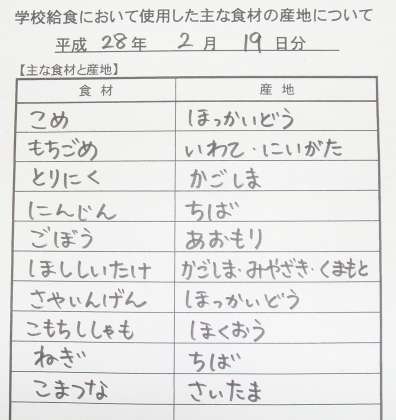 学校給食において使用した主な食材の産地について
平成 28 年 2 月 19 日分
【主な食材と産地】
食材 産地
こめ ほっかいどう
もちごめ いわて・にいがた
とりにく かごしま
にんじん ちば
ごぼう あおもり
ほししいたけ かごしま・みやざき・くまもと
さやいんげん ほっかいどう
こもちししゃも ほくおう
ねぎ ちば
こまつな さいたま